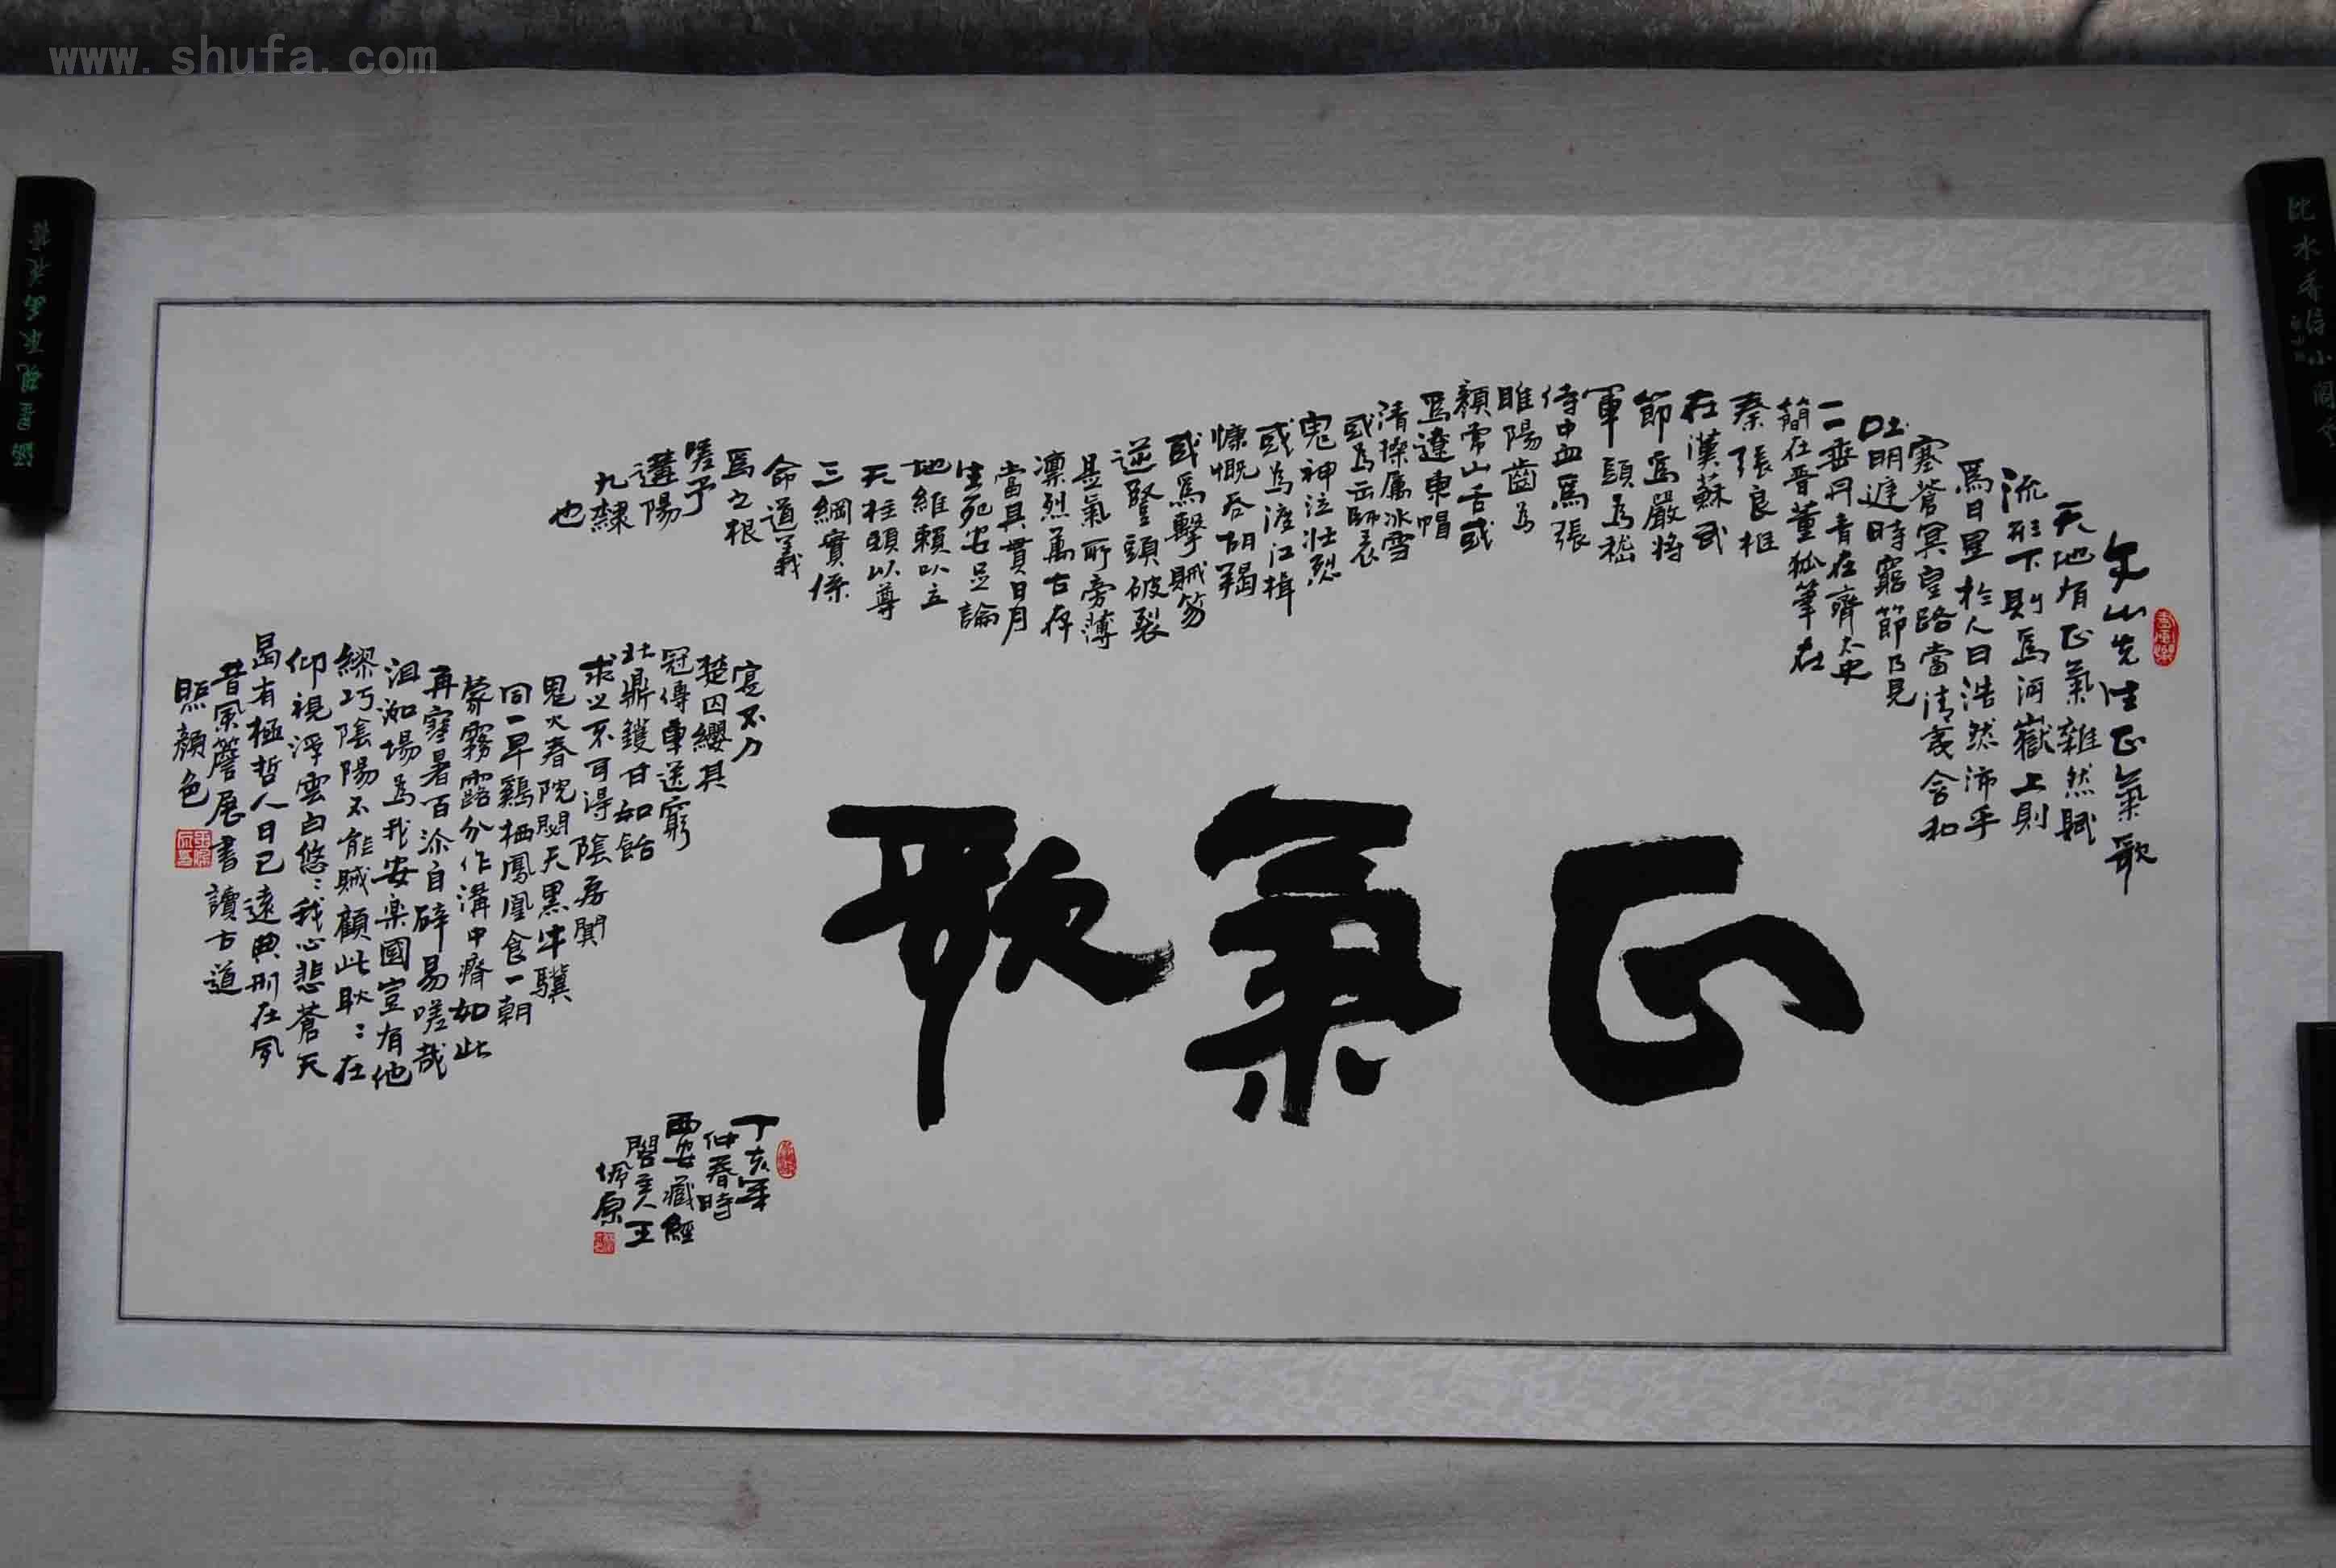 www.shufa.com
正氣歌
文山先生正氣歌
天地有正氣雜然賦
流形下則爲河嶽上則
爲日星於人曰浩然沛乎
塞蒼冥皇路當清夷含和
吐明廷時窮節乃見
一一垂丹青在齊太史
簡在晋董狐筆在
秦張良椎
在漢蘇武
節爲嚴將
軍頭爲嵇
侍中血爲張
睢陽齒为
顏常山舌或
爲遼東帽
清操厲冰雪
或為出師表
鬼神泣壯烈
或為渡江楫
慷慨吞胡羯
或爲擊賊笏
逆豎頭破裂
是氣所旁薄
凛烈萬古存
當其貫日月
生死安足論
地維賴以立
天柱頼以尊
三綱實係
命道義
爲之根
嗟予
遘陽
九隸
也
寔不力
楚囚纓其
冠傳車送窮
北鼎鑊甘如飴
求之不可得陰房闃
鬼火春院閟天黑牛驥
同一皂鷄栖鳳凰食一朝
蒙霧露分作溝中瘠如此
再寒暑百沴自辟易嗟哉
沮洳場為我安樂國豈有他
繆巧陰陽不能賊顧此耿〻在
仰視浮雲白悠〻我心悲蒼天
曷有極哲人日已遠典刑在夙
昔風簷展書讀古道
照顏色
丁亥年
仲春時
西安藏經
閣主人王
佩原